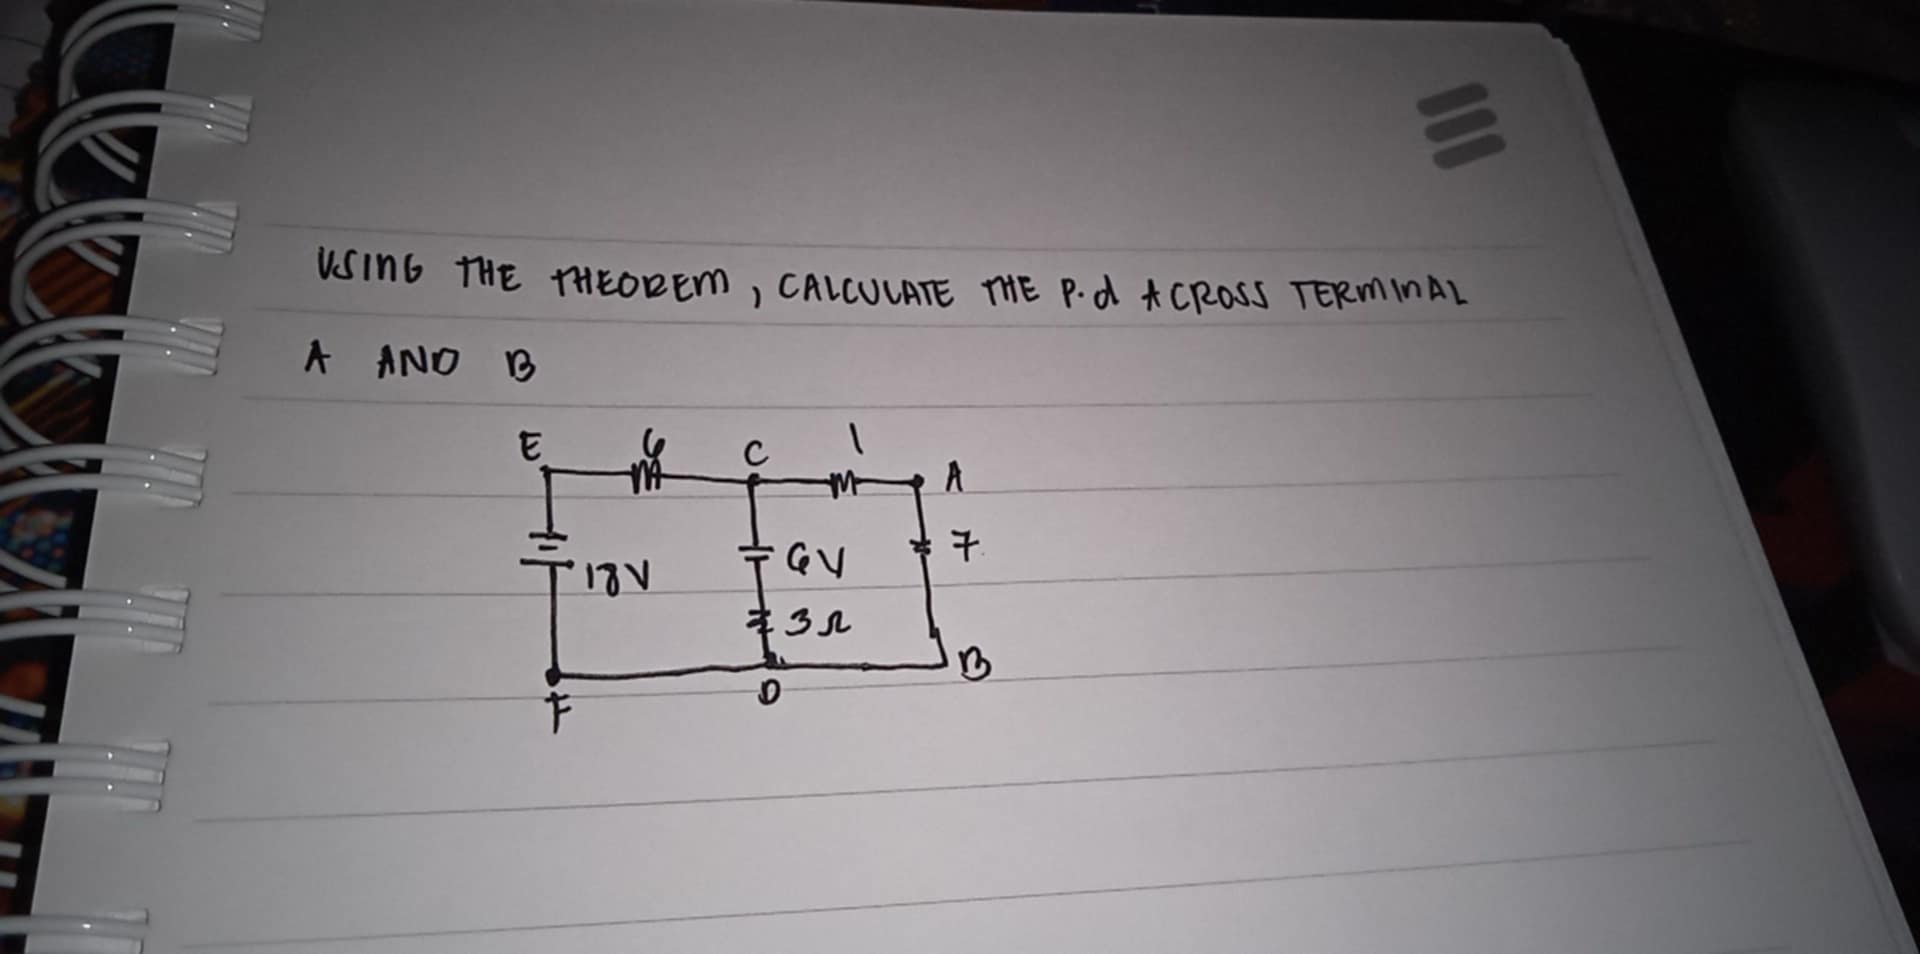 USING THE THEOREM, CALCULATE THE P.d ACROSS TERMINAL
A AND B
E 6 C 1 A
18V 6V 7
3Ω
F D B